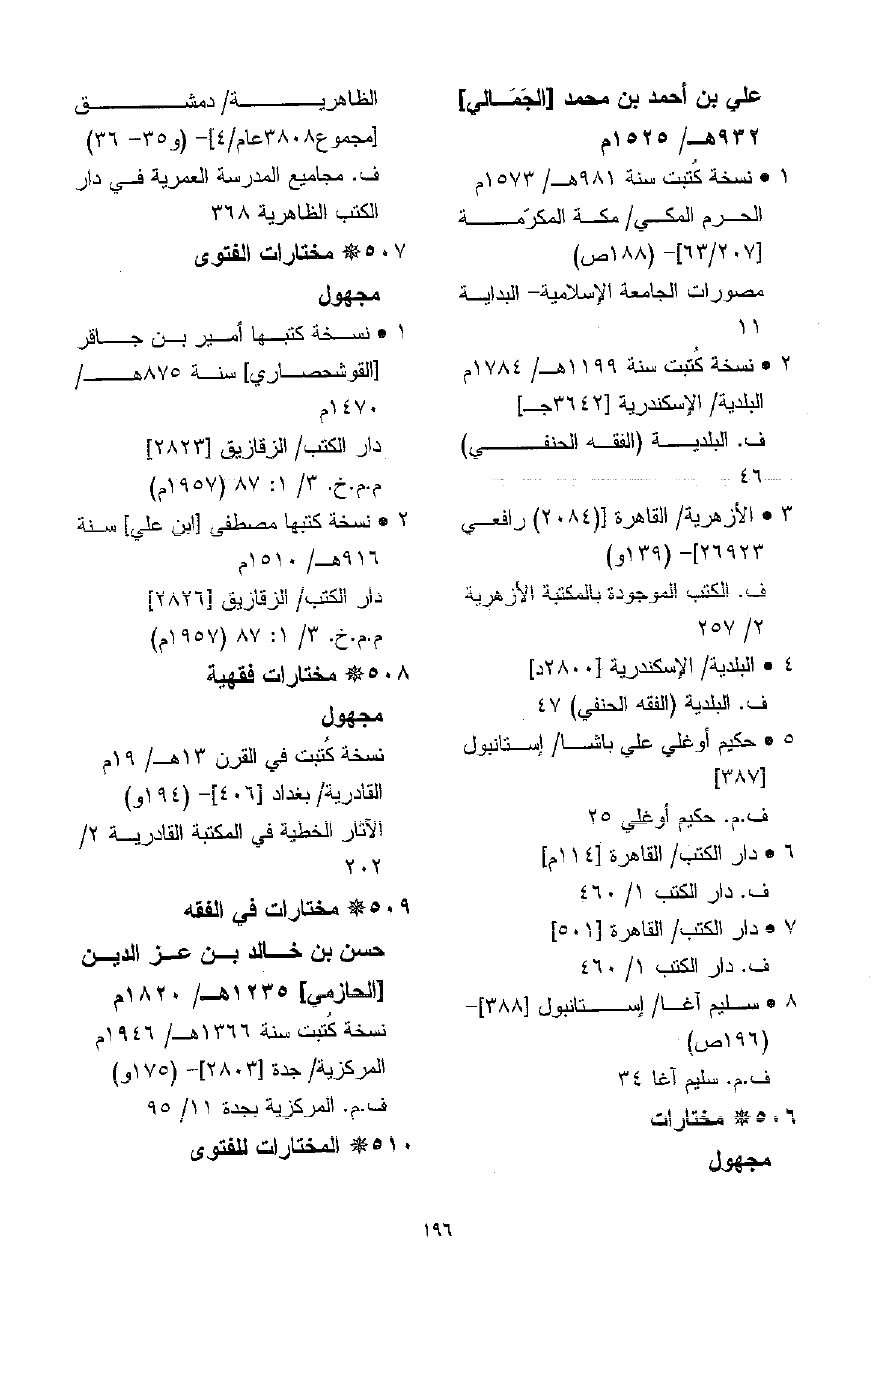 علي بن أحمد بن محمد [الجَمَالي]
٩٣٢هـ/ ١٥٢٥م
١ • نسخة كُتبت سنة ٩٨١هـ/ ١٥٧٣م
الحرم المكي/ مكة المكرّمة
[٦٣/٢٠٧]- (١٨٨ص)
مصورات الجامعة الإسلامية- البداية
١١
٢ • نسخة كُتبت سنة ١١٩٩هـ/ ١٧٨٤م
البلدية/ الإسكندرية [٣٦٤٢جـ]
ف. البلدية (الفقه الحنفي)
٤٦
٣ • الأزهرية/ القاهرة [(٢٠٨٤) رافعي
٢٦٩٢٣]- (١٣٩و)
ف. الكتب الموجودة بالمكتبة الأزهرية
٢/ ٢٥٧
٤ • البلدية/ الإسكندرية [٢٨٠٠د]
ف. البلدية (الفقه الحنفي) ٤٧
٥ • حكيم أوغلي علي باشا/ إستانبول
[٣٨٧]
ف.م. حكيم أوغلي ٢٥
٦ • دار الكتب/ القاهرة [١١٤م]
ف. دار الكتب ١/ ٤٦٠
٧ • دار الكتب/ القاهرة [٥٠١]
ف. دار الكتب ١/ ٤٦٠
٨ • سليم آغا/ إستانبول [٣٨٨]-
(١٩٦ص)
ف.م. سليم آغا ٣٤
٥٠٦ * مختارات
مجهول
الظاهرية/ دمشق
[مجموع٣٨٠٨عام/٤]- (و٣٥- ٣٦)
ف. مجاميع المدرسة العمرية في دار
الكتب الظاهرية ٣٦٨
٥٠٧ * مختارات الفتوى
مجهول
١ • نسخة كتبها أمير بن جاقر
[القوشحصاري] سنة ٨٧٥هـ/
١٤٧٠م
دار الكتب/ الزقازيق [٢٨٢٣]
م.م.خ. ٣/ ١: ٨٧ (١٩٥٧م)
٢ • نسخة كتبها مصطفى [ابن علي] سنة
٩١٦هـ/ ١٥١٠م
دار الكتب/ الزقازيق [٢٨٢٦]
م.م.خ. ٣/ ١: ٨٧ (١٩٥٧م)
٥٠٨ * مختارات فقهية
مجهول
نسخة كُتبت في القرن ١٣هـ/ ١٩م
القادرية/ بغداد [٤٠٦]- (١٩٤و)
الآثار الخطية في المكتبة القادرية ٢/
٢٠٢
٥٠٩ * مختارات في الفقه
حسن بن خالد بن عز الدين
[الحازمي] ١٢٣٥هـ/ ١٨٢٠م
نسخة كُتبت سنة ١٣٦٦هـ/ ١٩٤٦م
المركزية/ جدة [٢٨٠٣]- (١٧٥و)
ف.م. المركزية بجدة ١١/ ٩٥
٥١٠ * المختارات للفتوى
١٩٦